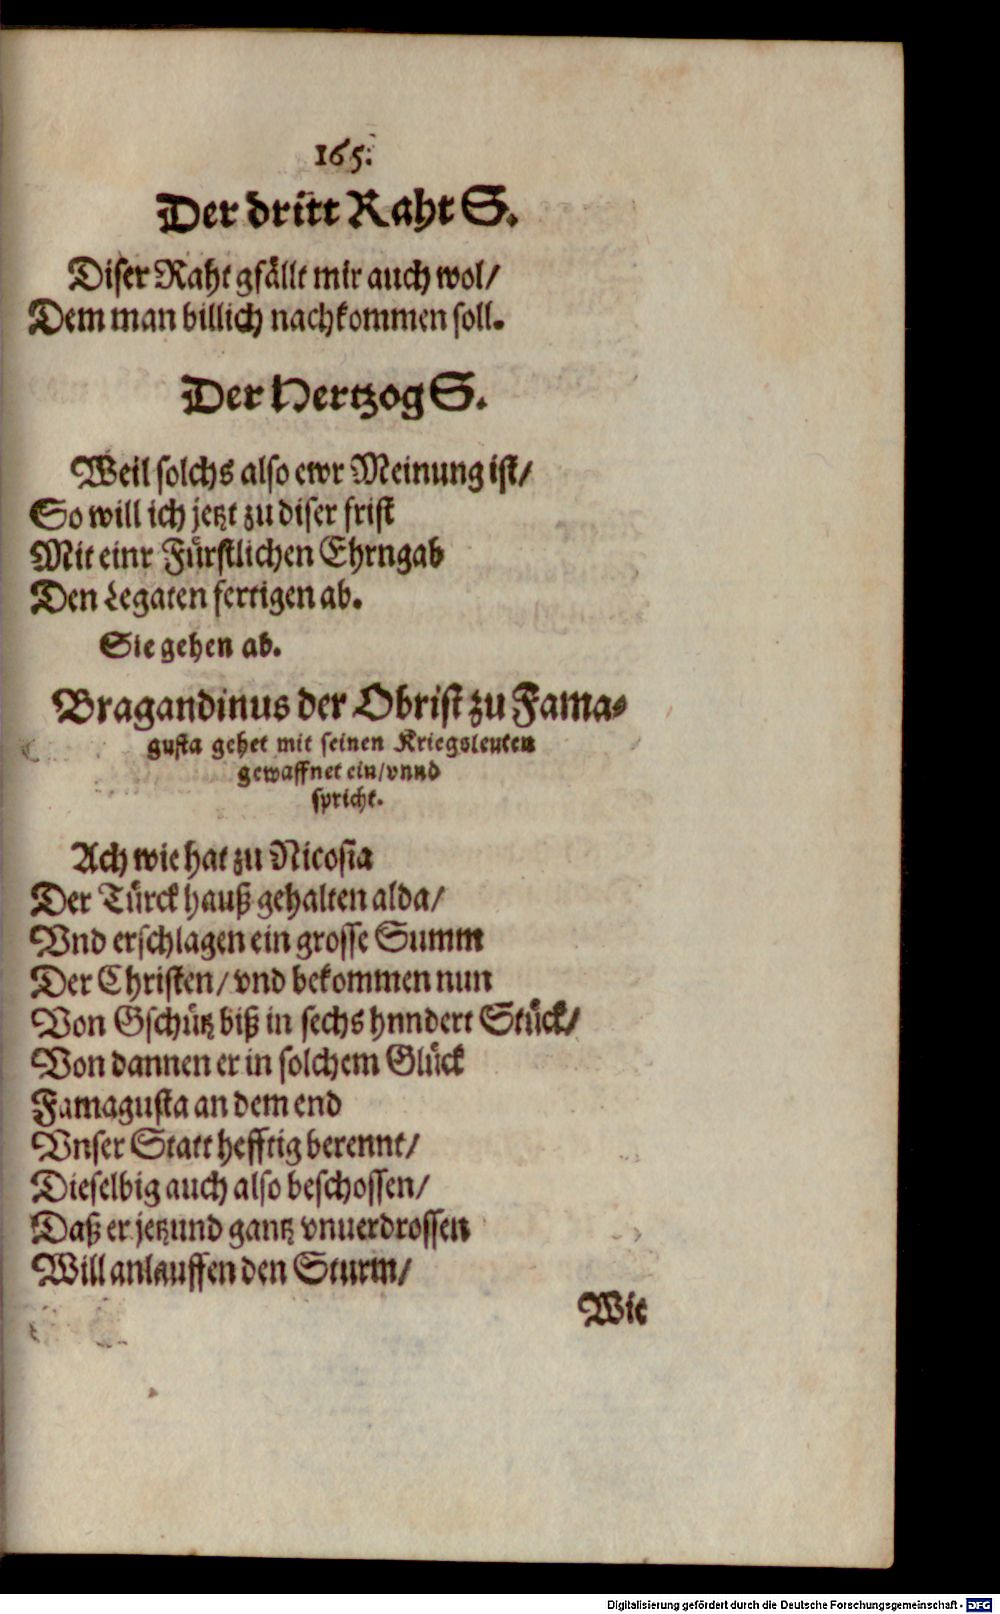 165.
Der dritt Raht S.
Diser Raht gfällt mir auch wol/
Dem man billich nachkommen soll.
Der Hertzog S.
Weil solchs also ewr Meinung ist/
So will ich jetzt zu diser frist
Mit einr Fürstlichen Ehrngab
Den Legaten fertigen ab.
Sie gehen ab.
Bragandinus der Obrist zu Fama-
gusta gehet mit seinen Kriegsleuten
gewaffnet ein/vnnd
spricht.
Ach wie hat zu Nicosia
Der Türck hauß gehalten alda/
Vnd erschlagen ein grosse Summ
Der Christen/ vnd bekommen nun
Von Gschütz biß in sechs hnndert Stück/
Von dannen er in solchem Glück
Famagusta an dem end
Vnser Statt hefftig berennt/
Dieselbig auch also beschossen/
Daß er jetzund gantz vnuerdrossen
Will anlauffen den Sturm/
Wie
Digitalisierung gefördert durch die Deutsche Forschungsgemeinschaft - DFG